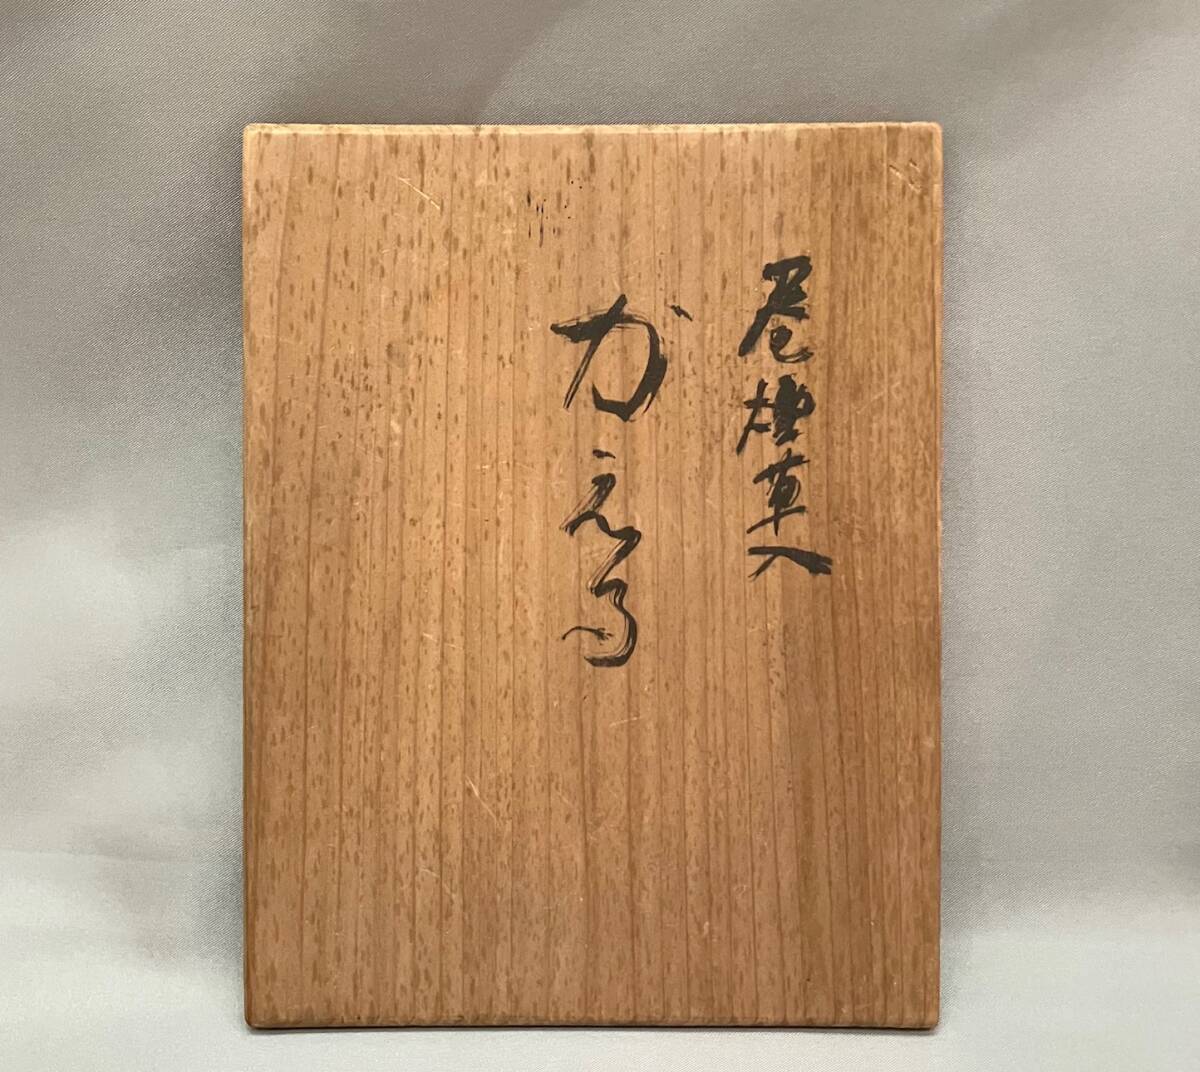 巻煙草入
かえる